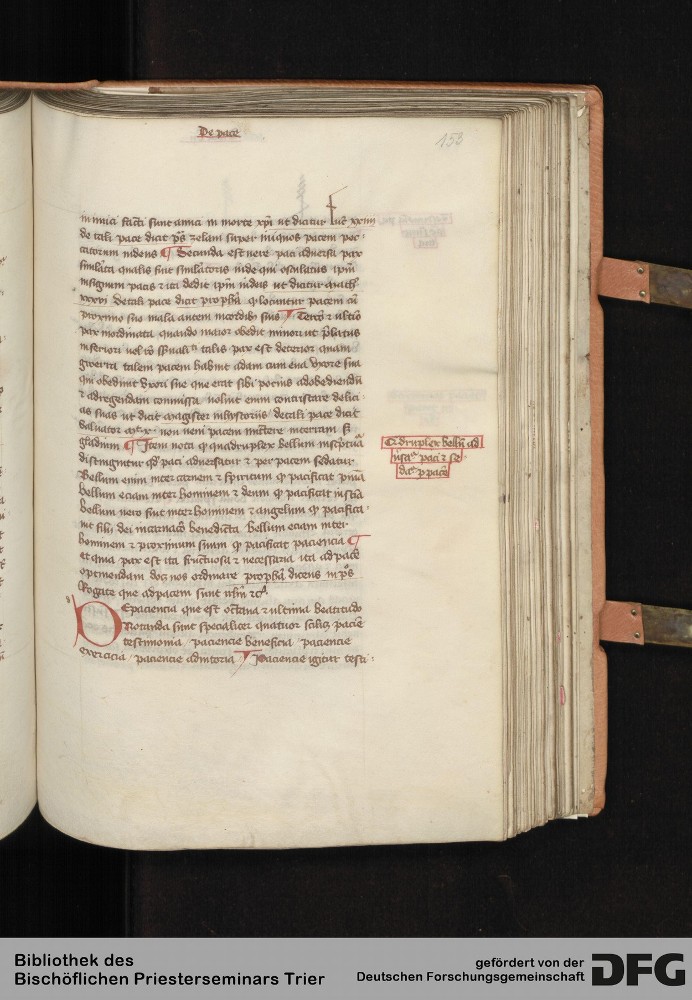 De pace
153
inimici facti sunt amici in morte xpi ut dicitur luc xxiiii
de tali pace dicit ps zelavi super iniquos pacem pec-
catorum videns Secunda est vere paci adversa pax
simulata qualis fuit simulatoris iude qui osculatus ipm
insignum pacis et ita dedit ipm iudeis ut dicitur math
xxvi De tali pace dicit propha qui locuntur pacem cum
proximo suo mala autem in cordibus suis Tercia et ultima
pax inordinata quando maior obedit minori ut prelatus
inferiori talis pax est deterior quam
guerra talem pacem habuit adam cum eua uxore sua
qui obedivit uxori sue que erat sibi pocius ad obediendum
et ad regendam commissa noluit enim contristare delici-
as suas ut dicit magister in hystoriis de tali pace dicit
salvator mt x non veni pacem mittere in terram sed
gladium Item nota quod quadruplex bellum in scriptura
distinguitur quod paci adversatur et per pacem sedatur
Bellum enim inter carnem et spiritum quod pacificat
bellum eciam inter hominem et deum quod pacificat iusticia
bellum vero fuit inter hominem et angelum quod pacifica-
vit filii dei incarnacio benedicta Bellum eciam inter
hominem et proximum suum quod pacificat paciencia
et quia pax est ita fructuosa et necessaria ita ad pacem
optinendam docet nos ordinare propheta dicens in ps
Rogate que ad pacem sunt ihrlm etc
De paciencia que est octava et ultima beatitudo
Notanda sunt specialiter quatuor scilicet paciencie
testimonia paciencie beneficia paciencie
exercicia paciencie adiutoria Paciencie igitur testi-
Quadruplex bellum ad
paci et se
datur per pacem
Bibliothek des
Bischöflichen Priesterseminars Trier
gefördert von der
Deutschen Forschungsgemeinschaft
DFG